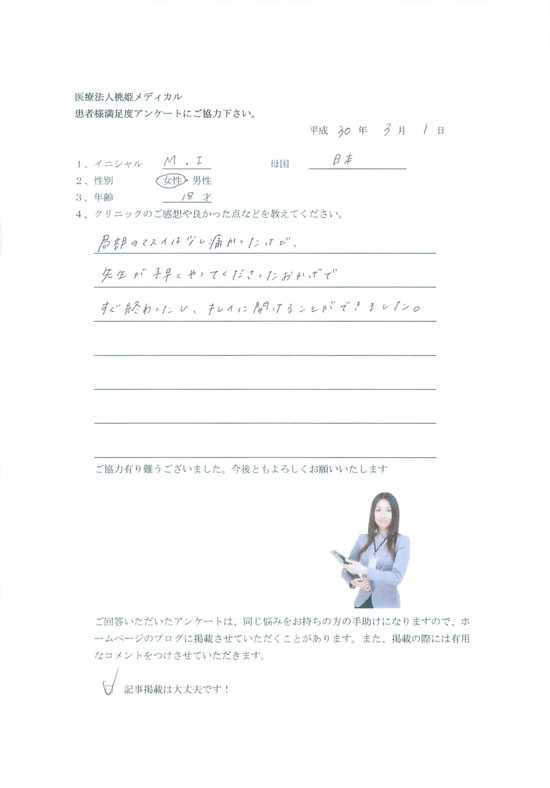 医療法人桃姫メディカル
患者様満足度アンケートにご協力下さい。
平成 30 年 3 月 1 日
1、イニシャル M.I 母国 日本
2、性別 女性・男性
3、年齢 18 才
4、クリニックのご感想や良かった点などを教えてください。
局部のマスイは少し痛かったけど、
先生が手早くやってくださったおかげで
すぐ終わったし、キレイに開けることができました。
ご協力有り難うございました。今後ともよろしくお願いいたします
ご回答いただいたアンケートは、同じ悩みをお持ちの方の手助けになりますので、ホ
ームページのブログに掲載させていただくことがあります。また、掲載の際には有用
なコメントをつけさせていただきます。
記事掲載は大丈夫です！